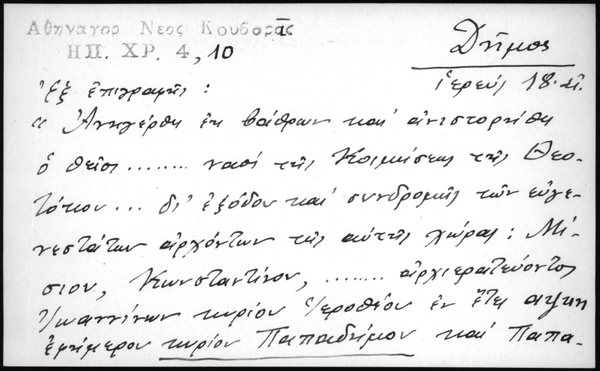 Αθηναγορ Νεος Κουβαρᾶς
ΗΠ. ΧΡ. 4, 10
Δῆμος
ἱερεύς 18. αἰ.
Ἐξ ἐπιγραφῆς :
« Ἀνηγέρθη ἐκ βάθρων καί ἀνιστορήθη
ὁ θεῖος ........ ναός τῆς Κοιμήσεως τῆς Θεο-
τόκου ... δι' ἐξόδου καί συνδρομῆς τῶν εὐγε-
νεστάτων ἀρχόντων τῆς αὐτῆς χώρας : Μί-
σιου, Κωνσταντίνου, ........ ἀρχιερατεύοντος
Ἰωαννίνων κυρίου Ἱεροθέου ἐν ἔτει
ἐφημέρου κυρίου Παπαδήμου καί Παπα-